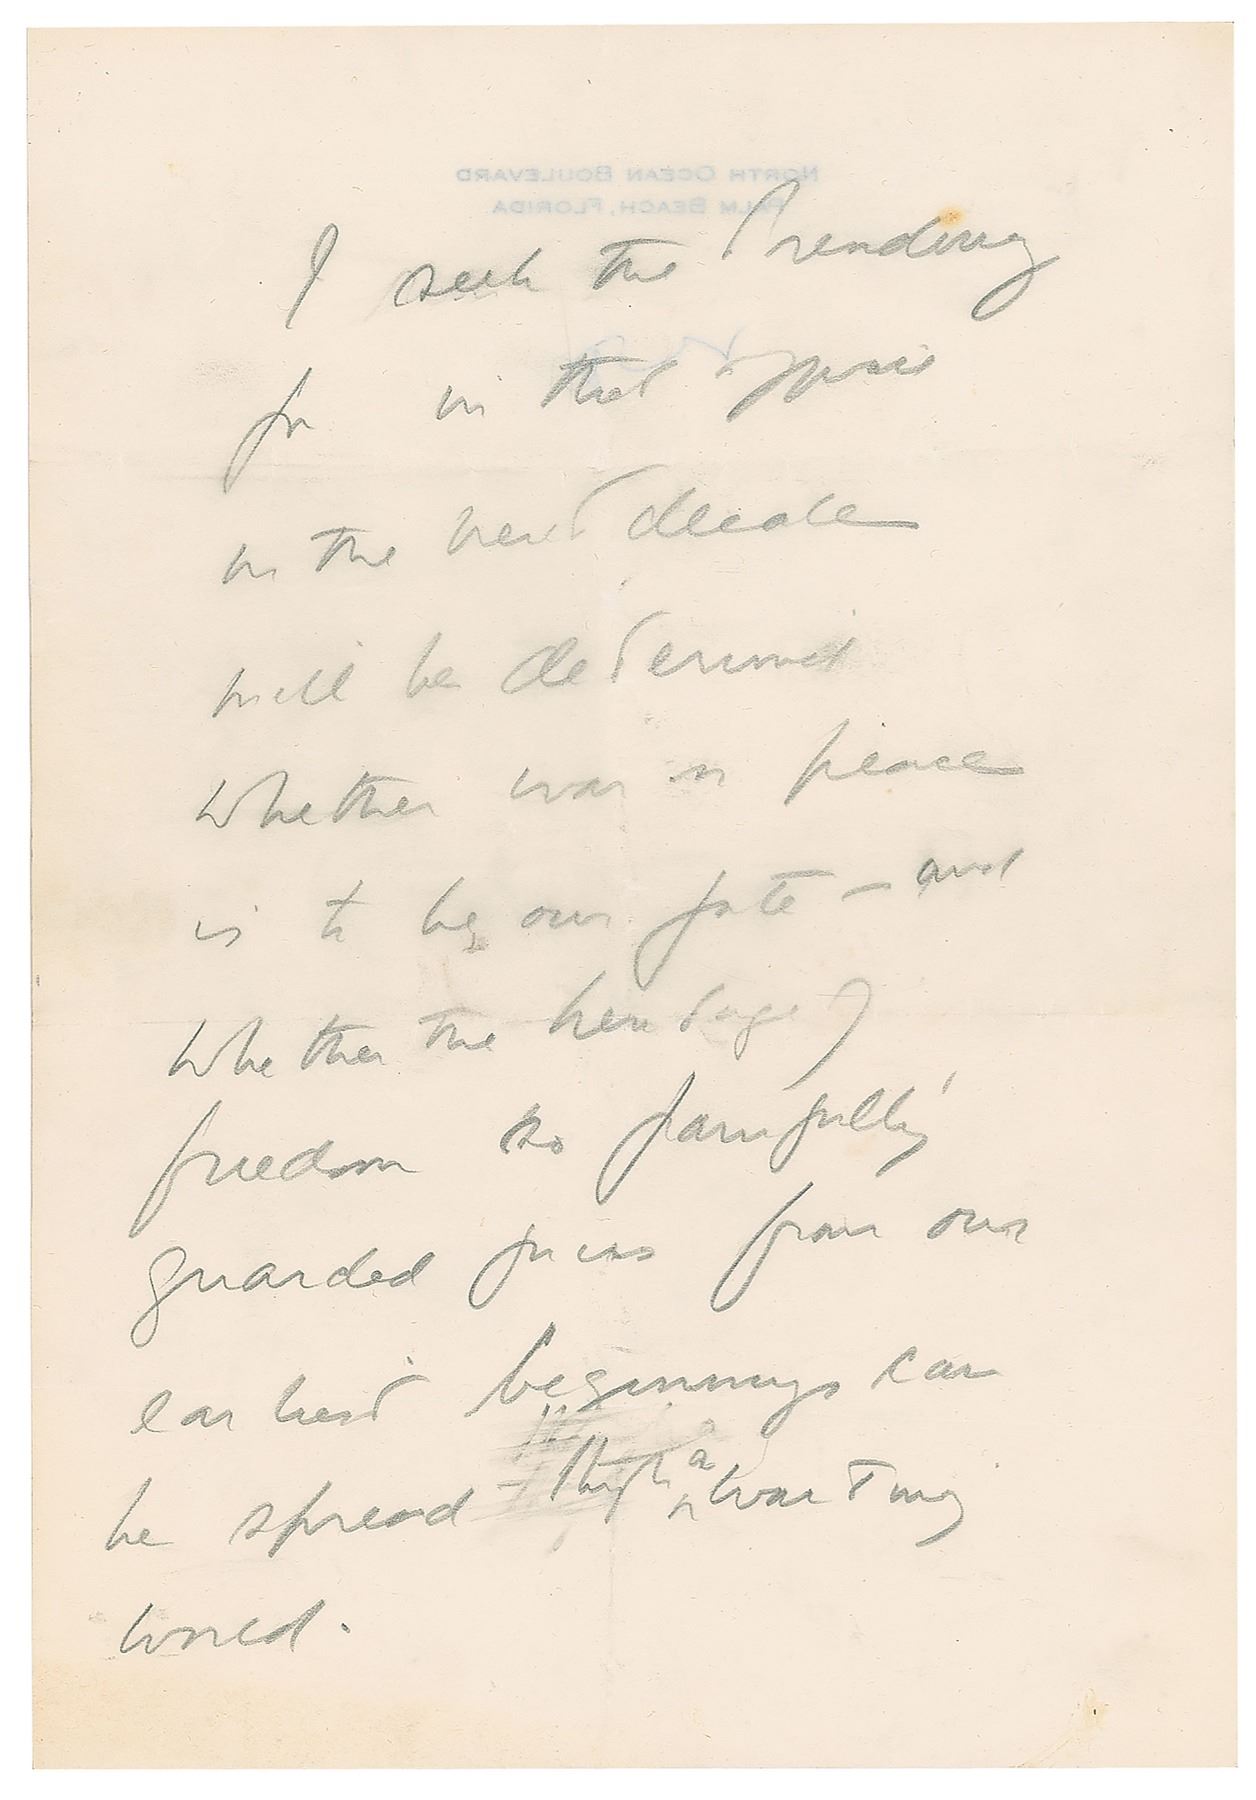 NORTH OCEAN BOULEVARD
PALM BEACH, FLORIDA
I seek the Presidency
for in that office
in the next decade
will be determined
whether war or peace
is to be our fate – and
whether the heritage of
freedom so painfully
guarded from our
earliest beginnings can
be spread – through a waiting
world.